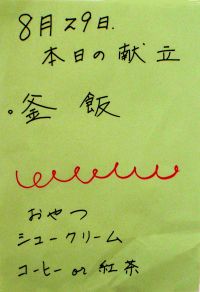 8月29日.
本日の献立
。釜飯
おやつ
シュークリーム
コーヒー or 紅茶